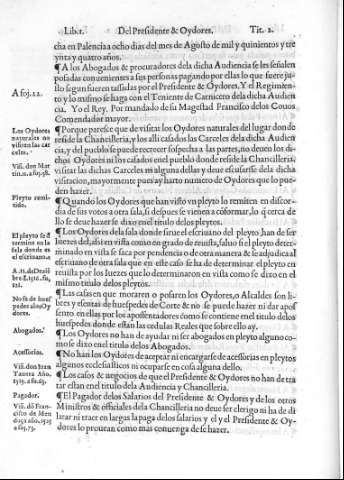 Lib.1. Del Presidente & Oydores. Tit. 2.
cha en Palencia a ocho dias del mes de Agosto de mil y quinientos y tre
ynta y quatro años.
¶A los Abogados & procuradores dela dicha Audiencia se les señalen
posadas convenientes a sus personas pagando por ellas lo que fuere ju
sto segun fueren tassadas por el Presidente & Oydores. Y el Regimien
to y lo mismo se haga con el Teniente de Carnicero dela dicha Audien
cia. Yo el Rey. Por mandado de su Magestad Francisco delos Covos
Comendador mayor.
A foj.12.
¶Por que paresce que de visitar los Oydores naturales del lugar donde
reside la Chancilleria, y los alli casados las Carceles dela dicha Audien
cia, y del pueblo se puede recrecer sospecha a las partes, no deuen los di-
chos Oydores ni los casados en el pueblo donde reside la Chancilleria
visitar las dichas Carceles ni alguna dellas y deue escusarse dela dicha
visitacion, mayormente pues ay harto numero de Oydores que lo pue
den hazer.
Los Oydores
naturales no
visiten las car
celes.
Visi. don Mar
tin. n. a foj.58.
¶Quando los Oydores que han visto vn pleyto lo remiten en discor-
dia de sus votos a otra sala, si despues se vienen a conformar, lo q̃ cerca de
llo se deue hazer se dixo enel titulo delos pleytos.
Pleyto remi-
tido.
¶Los Oydores dela sala donde sirue el escriuano del pleyto, han de ser
Iuezes del, assi en vista como en grado de reuista, saluo si el pleyto deter-
minado en vista se saca por pendencia o de otra manera & se adjudica al
escriuano de otra sala que en este caso se ha de determinar el pleyto en
reuista por los Iuezes que lo determinaron en vista como se dixo en el
mismo titulo delos pleytos.
El pleyto se &
termine en la
sala donde es
el escriuano.
¶Las casas en que moraren o posaren los Oydores, o Alcaldes son li-
bres y esentas de huespedes de Corte & no se puede hazer ni dar aposs
sento en ellas por los aposentadores como se contiene en el titulo delos
huespedes donde estan las cedulas Reales que sobre ello ay.
No se & hues
pedes alos Oy
dores.
¶Los Oydores no han de ayudar ni ser abogados en pleyto alguno co-
mo se dixo enel titulo delos Abogados.
Abogados.
¶No han los Oydores de aceptar ni encargarse de asessorias en pleytos
algunos ecclesiasticos ni ocuparse en cosa alguna dello.
Asessorias.
¶Los casos & negocios de que el Presidente & Oydores no han de tra
tar estan enel titulo dela Audiencia y Chancilleria.
¶El Pagador delos Salarios del Presidente & Oydores y de los otros
Ministros & officiales dela Chancilleria no deue ser clerigo ni ha de di-
latar ni traer en largas la paga delos salarios y el y el Presidente & Oy-
dores lo procuran como mas conuenga de se hazer.
Pagador.